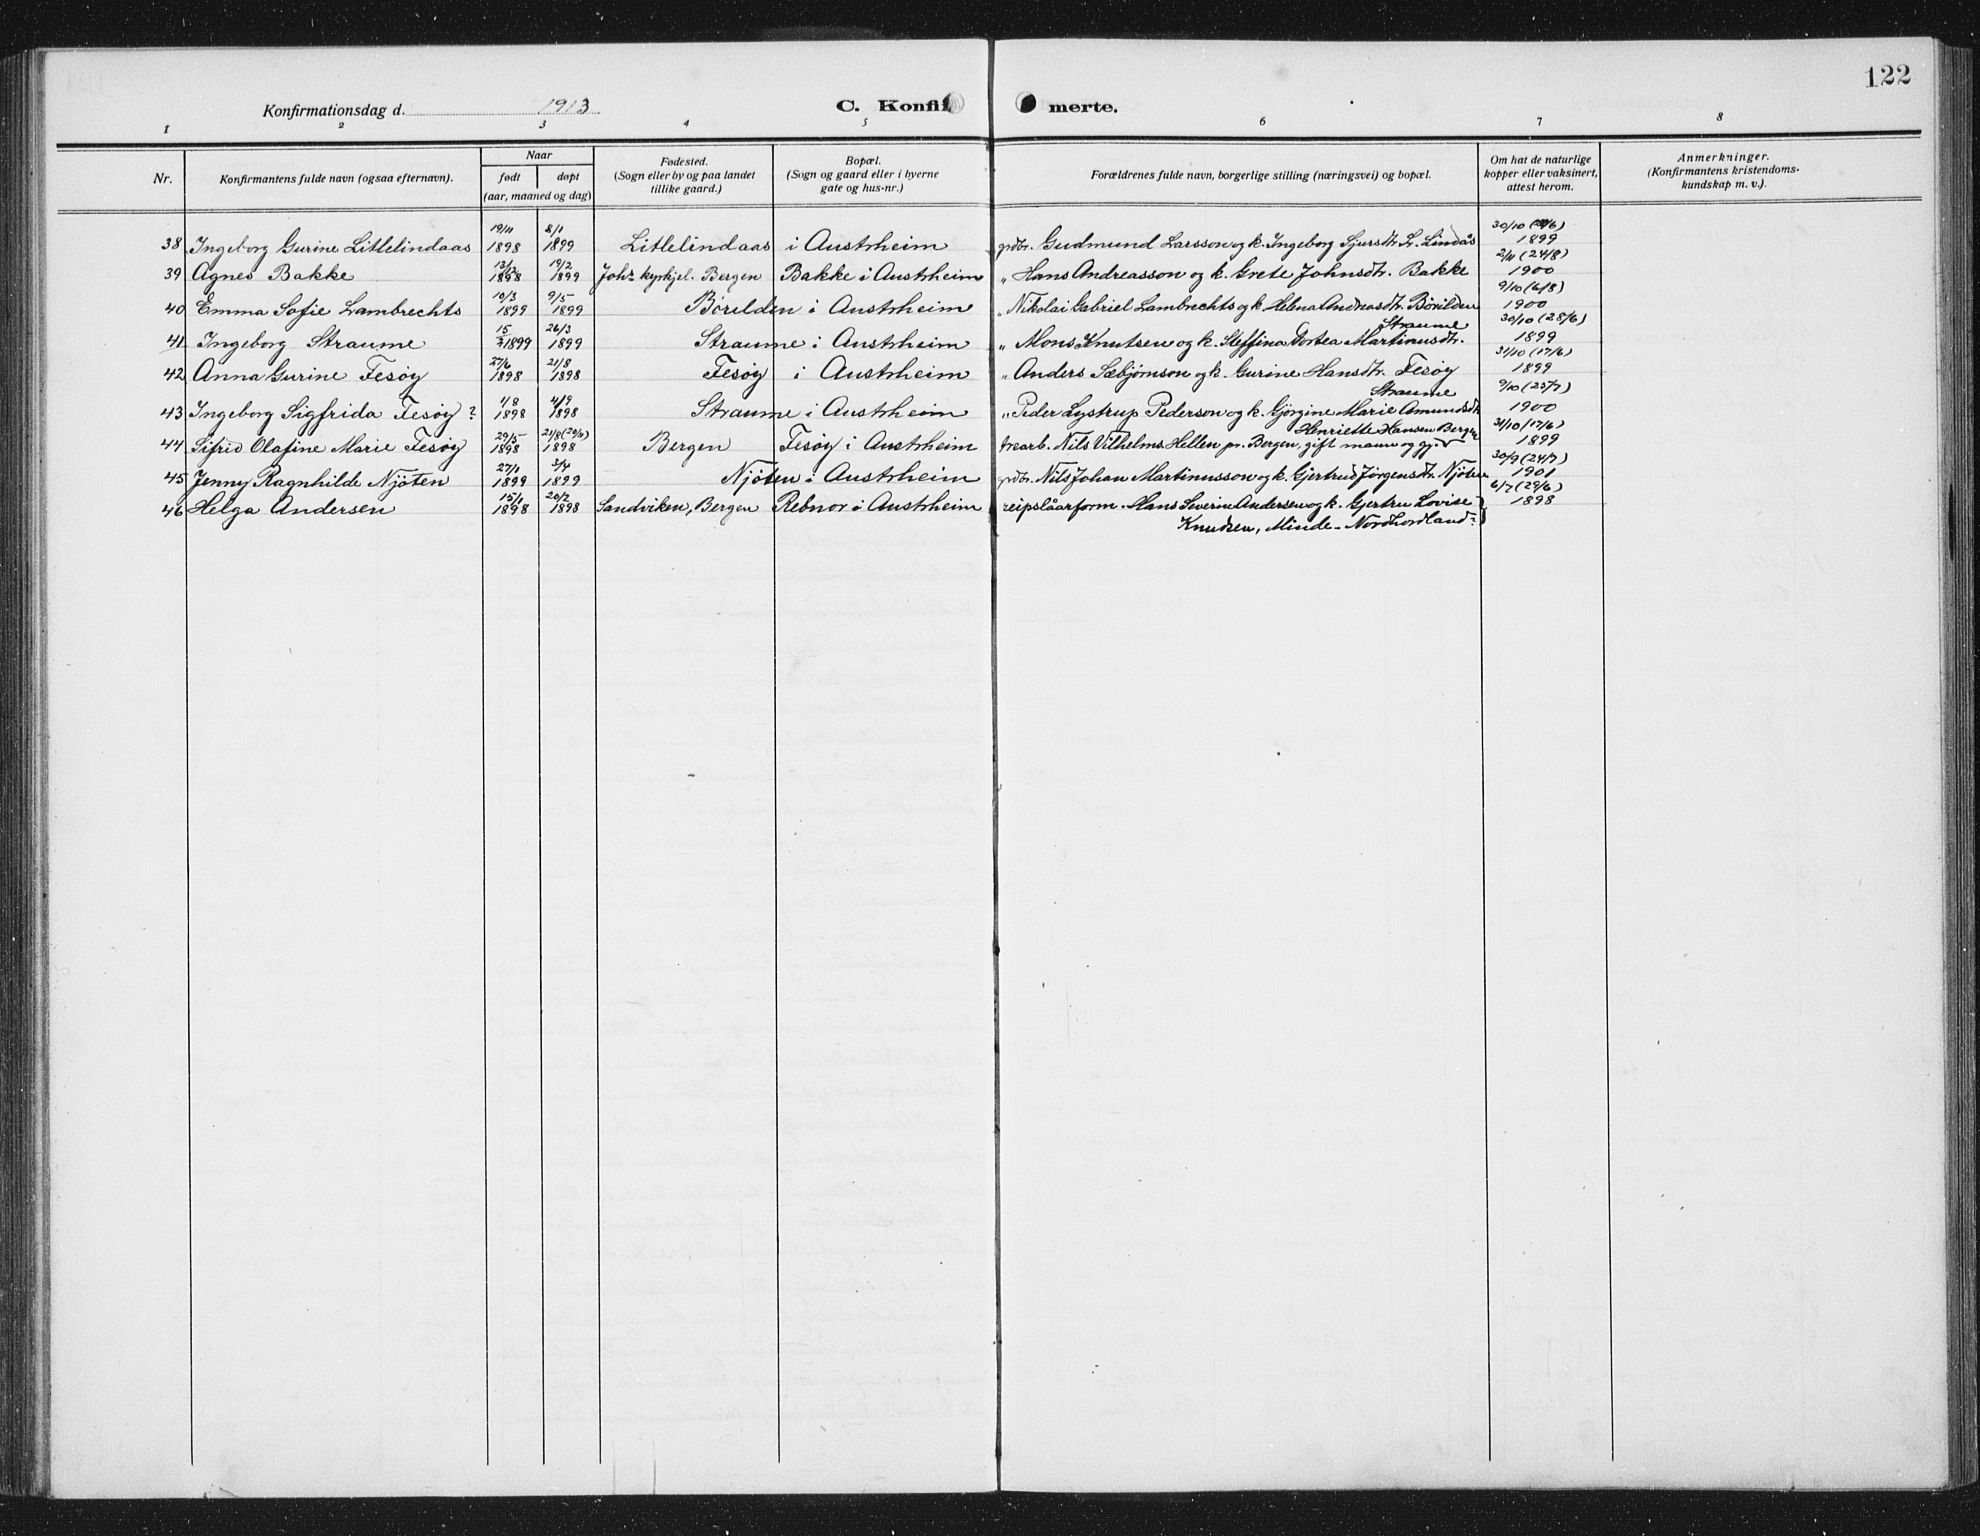 122
Konfirmationsdag d. 1913
C. Konfir merte.
1 2 3 4 5 6 7 8
Nr.
Konfirmantens fulde navn (ogsaa efternavn).
Naar
født døpt
(aar, maaned og dag)
Fødested.
(Sogn eller by og paa landet
tillike gaard.)
Bopæl.
(Sogn og gaard eller i byerne
gate og hus-nr.)
Forældrenes fulde navn, borgerlige stilling (næringsvei) og bopæl.
Om hat de naturlige
kopper eller vaksinert,
attest herom.
Anmerkninger.
(Konfirmantens kristendoms-
kundskap m. v.).
38 Ingeborg Gurine Litlelindaas 19/11 1898 8/1 1899 Litlelindaas i Austrheim grdbr. Gudmund Larsson og k. Ingeborg Sjursdtr. L. Lindås 30/10 1899
39 Agnes Bakke 1898 19/2 1899 Johs kyrkjel. Bergen Bakke i Austrheim " Hans Andreasson og k. Grete Johnsdtr. Bakke 2/11 (24/8) 1900
40 Emma Sofie Lambrechts 10/3 1899 9/5 1899 Børilden i Austrheim " Nikolai Gabriel Lambrechts og k. Helena Andreasdtr. Børilden 9/10 (6/8) 1900
41 Ingeborg Straume 1899 26/3 1899 Straume i Austrheim " Mons Knutsen og k. Steffina Dortea Martinusdtr. Straume 30/10 (28/6) 1899
42 Anna Gurine Fesøy 27/6 1898 21/8 1898 Fesøy i Austrheim " Anders Sæbjørnson og k. Gurine Hansdtr. Fesøy 31/10 (17/6) 1899
43 Ingeborg Sigfrida Fesøy? 1/8 1898 4/9 1898 Straume i Austrheim " Peder Lystrup Pederson og k. Gjørgine Marie Amundsdtr. Straume 9/10 (25/7) 1900
44 Sifrid Olafine Marie Fesøy 29/5 1898 21/8 1898 Bergen Fesøy i Austrheim trearb. Nils Vilhelms. Hellen pr. Bergen, gift mann og gj. Henriette Hansen Bergen 31/10 (17/6) 1899
45 Jenny Ragnhilde Njøten 27/1 1899 3/4 1899 Njøten i Austrheim grdbr. Nils Johan Martinusson og k. Gjertrud Jørgensdtr. Njøten 30/9 (24/7) 1901
46 Helga Andersen 15/1 1898 20/2 1898 Sandviken, Bergen Rebnor i Austrheim reipslåarform. Hans Severin Andersen og k. Gjertru Lovise 6/7 (29/6) 1898
Knudsen, Minde - Nordhordland?